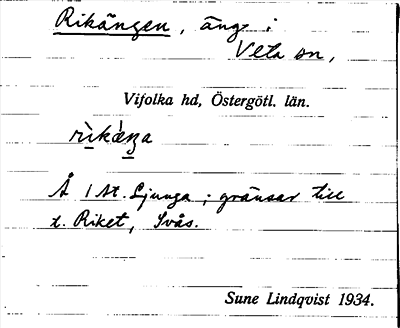 Rikängen, äng i
Veta sn,
Vifolka hd, Östergötl. län.
Å 1 St. Ljunga; gränsar till
t. Riket, Svås.
Sune Lindqvist 1934.